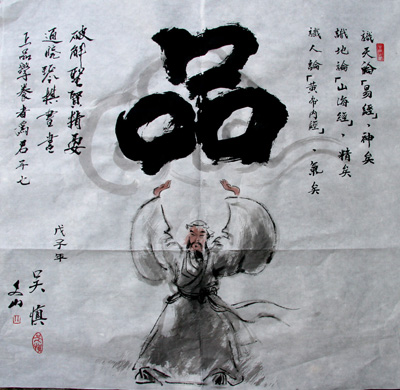 識天論「易經」，神矣
識地論「山海經」，精矣
識人論「黃帝內經」，氣矣
品
破解聖賢精要
通曉琴棋書畫
品學養者
戊子年
吳慎